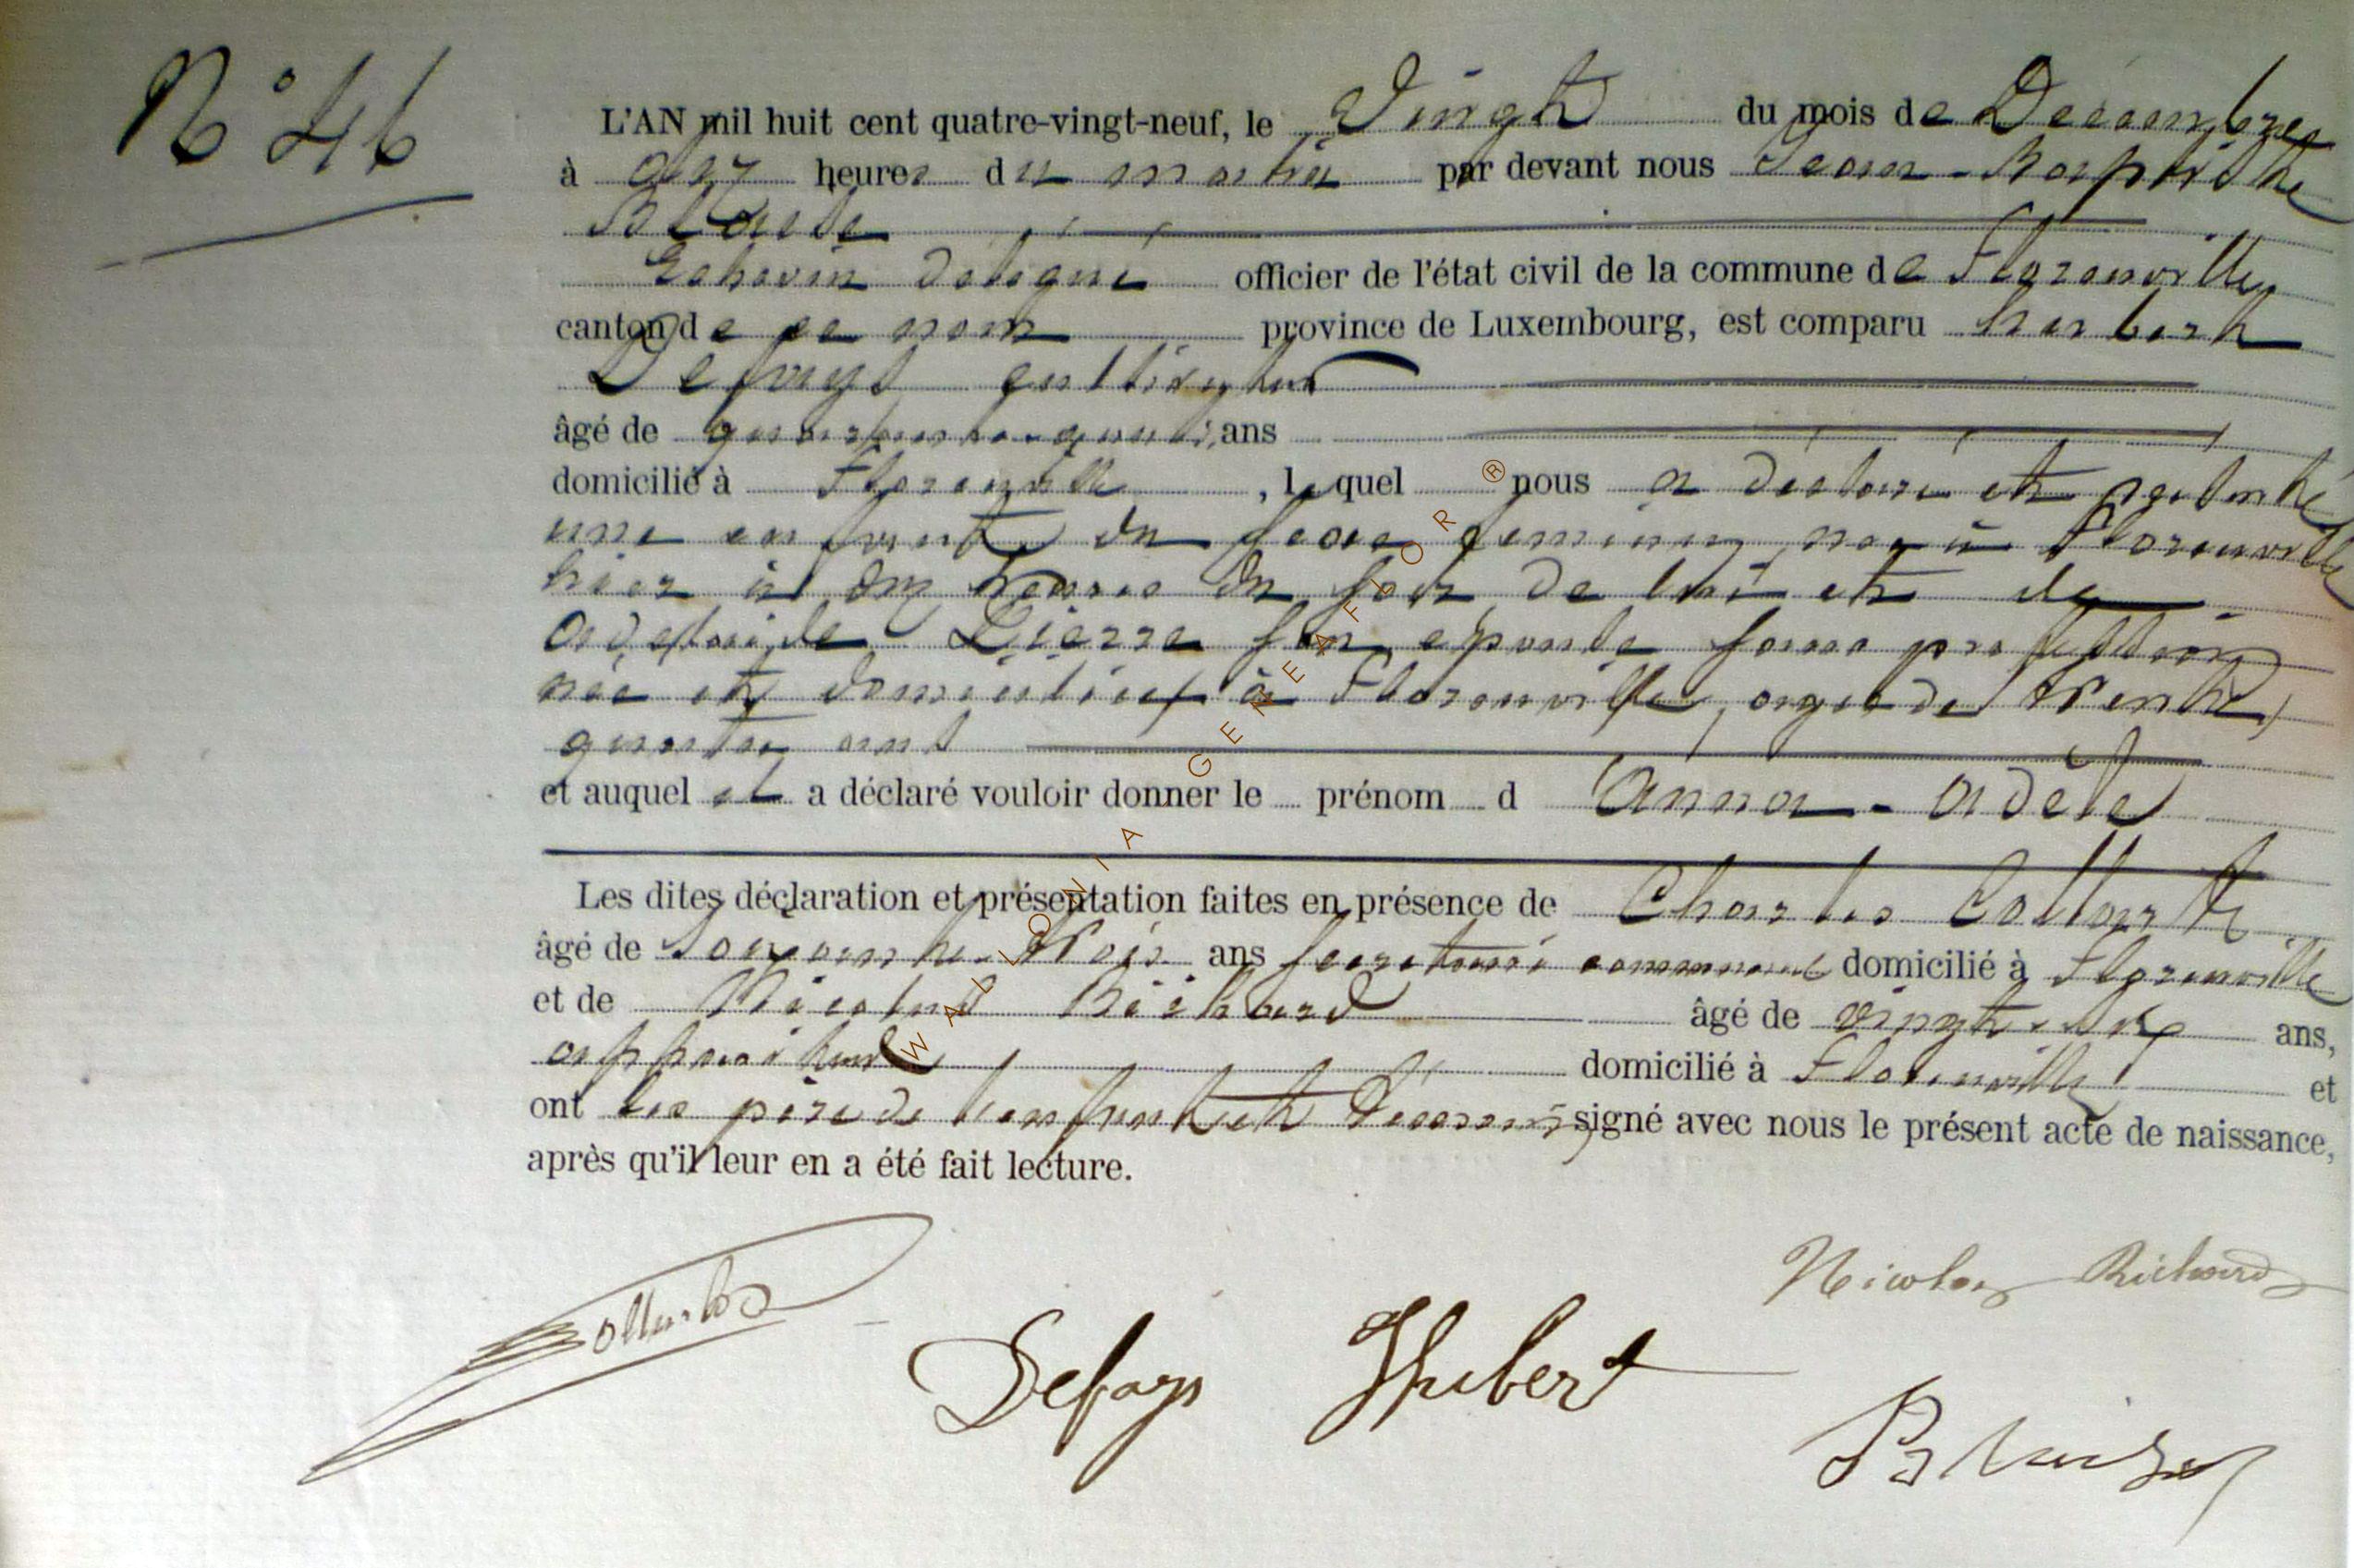 N° 46
L'AN mil huit cent quatre-vingt-neuf, le Vingt du mois de Décembre
à dix heures du matin par devant nous Jean-Baptiste
Blaise
Echevin délégué officier de l'état civil de la commune de Florenville
canton de ce nom province de Luxembourg, est comparu hubert
Defays cultivateur
âgé de quarante-quatre ans
domicilié à Florenville, lequel nous a déclaré et présenté
une enfant du sexe féminin, née à Florenville
hier à onze heures du soir, de lui et de
adelaïde Pierre son épouse sans profession
née et domiciliée à Florenville, agée de trente
quatre ans
et auquel il a déclaré vouloir donner le prénom d Anna-adèle
Les dites déclaration et présentation faites en présence de Charles Collart
âgé de soixante-trois ans secrétaire communal domicilié à Florenville
et de Nicolas Richard âgé de vingt-six ans,
appariteur domicilié à Florenville et
ont les père de l'enfant et témoins, signé avec nous le présent acte de naissance,
après qu'il leur en a été fait lecture.
Nicolas Richard
Defays Hubert
Blaise
WALLONIA GENEAFLOR ®